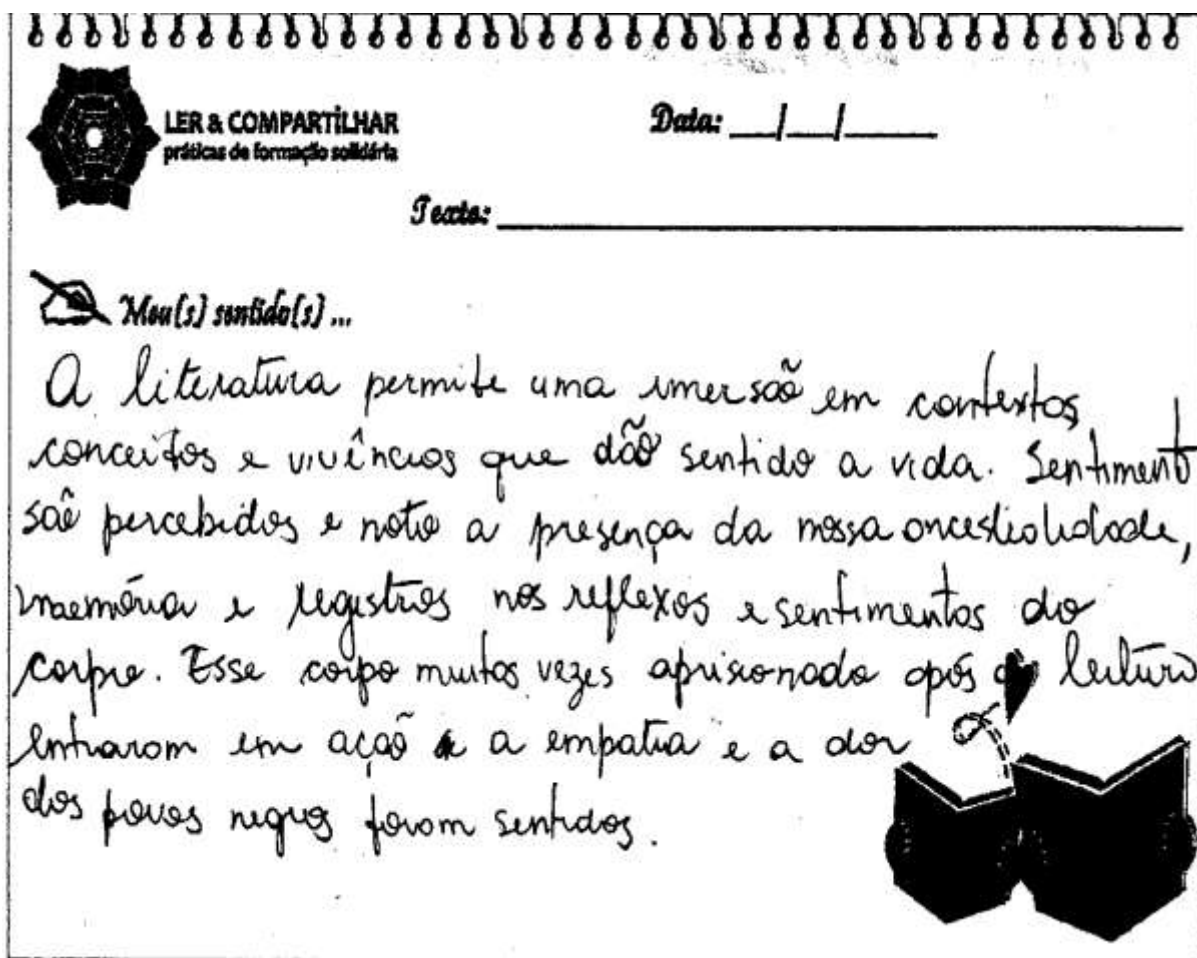 LER & COMPARTILHAR
práticas de formação solidária
Data: __/__/____
Texto: ____________________
Meu(s) sentido(s) ...
A literatura permite uma imersão em contextos,
conceitos e vivências que dão sentido a vida. Sentimento
são percebidos e noto a presença da nossa ancestralidade,
memória e registros nos reflexos e sentimentos do
corpo. Esse corpo muitas vezes aprisionado após a leitura
entraram em ação a empatia e a dor
dos povos negros foram sentidos.